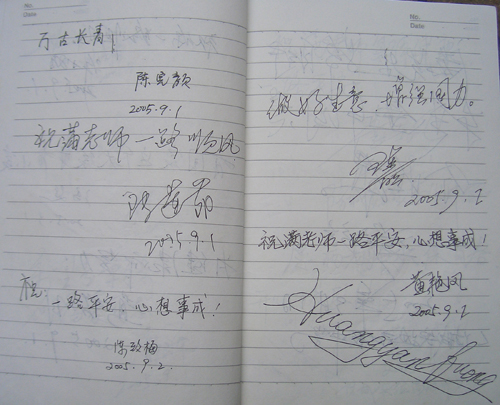 No.
Date
万古长青!
陈宪颜
2005.9.1
祝满老师一路顺风
2005.9.1
祝:
一路平安,心想事成!
2005.9.2.
No.
Date
做好生意,增强国力。
2005.9.2
祝满老师一路平安,心想事成!
黄艳凤
2005.9.2
Huangyanfueng